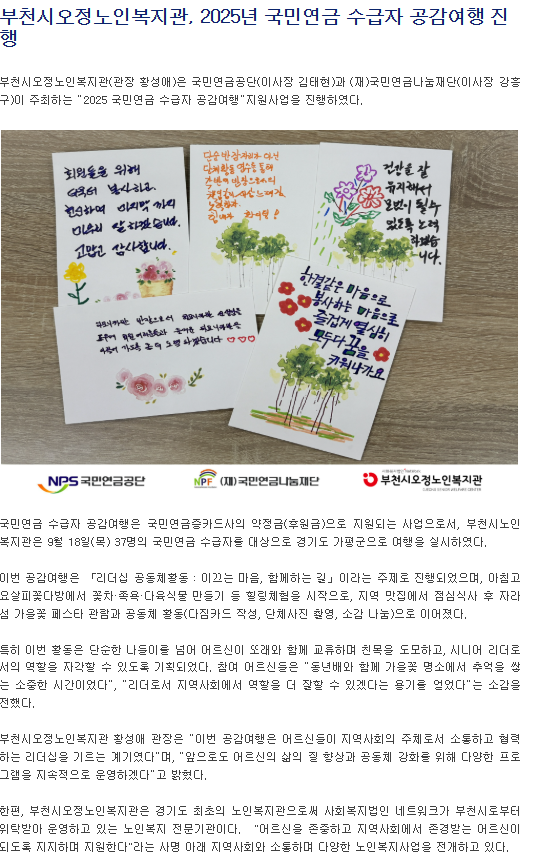 부천시오정노인복지관, 2025년 국민연금 수급자 공감여행 진
행
부천시오정노인복지관(관장 황성애)은 국민연금공단(이사장 김태현)과 (재)국민연금나눔재단(이사장 강홍
구)이 주최하는 "2025 국민연금 수급자 공감여행"지원사업을 진행하였다.
회원들을 위해
더욱더 봉사하고
헌신하여 마지막 까지
마무리 잘 하겠습니다.
고맙고 감사합니다.
건강을 잘
유지해서
모범이 될수
있도록 노력
하겠습
니다.
한결같은 마음으로
봉사하는 마음으로
즐겁게 열심히
모두다 꿈을
키워나가요
NPS 국민연금공단
NPF (재)국민연금나눔재단
부천시오정노인복지관
국민연금 수급자 공감여행은 국민연금증카드사의 약정금(후원금)으로 지원되는 사업으로서, 부천시노인
복지관은 9월 18일(목) 37명의 국민연금 수급자를 대상으로 경기도 가평군으로 여행을 실시하였다.
이번 공감여행은 「리더십 공동체활동 : 이끄는 마음, 함께하는 길」이라는 주제로 진행되었으며, 아침고
요살피꽃다방에서 꽃차·족욕·다육식물 만들기 등 힐링체험을 시작으로, 지역 맛집에서 점심식사 후 자라
섬 가을꽃 페스타 관람과 공동체 활동(다짐카드 작성, 단체사진 촬영, 소감 나눔)으로 이어졌다.
특히 이번 활동은 단순한 나들이를 넘어 어르신이 또래와 함께 교류하며 친목을 도모하고, 시니어 리더로
서의 역할을 자각할 수 있도록 기획되었다. 참여 어르신들은 "동년배와 함께 가을꽃 명소에서 추억을 쌓
는 소중한 시간이었다", "리더로서 지역사회에서 역할을 더 잘할 수 있겠다는 용기를 얻었다"는 소감을
전했다.
부천시오정노인복지관 황성애 관장은 "이번 공감여행은 어르신들이 지역사회의 주체로서 소통하고 협력
하는 리더십을 기르는 계기였다"며, "앞으로도 어르신의 삶의 질 향상과 공동체 강화를 위해 다양한 프로
그램을 지속적으로 운영하겠다"고 밝혔다.
한편, 부천시오정노인복지관은 경기도 최초의 노인복지관으로써 사회복지법인 네트워크가 부천시로부터
위탁받아 운영하고 있는 노인복지 전문기관이다. "어르신을 존중하고 지역사회에서 존경받는 어르신이
되도록 지지하며 지원한다"라는 사명 아래 지역사회와 소통하며 다양한 노인복지사업을 전개하고 있다.